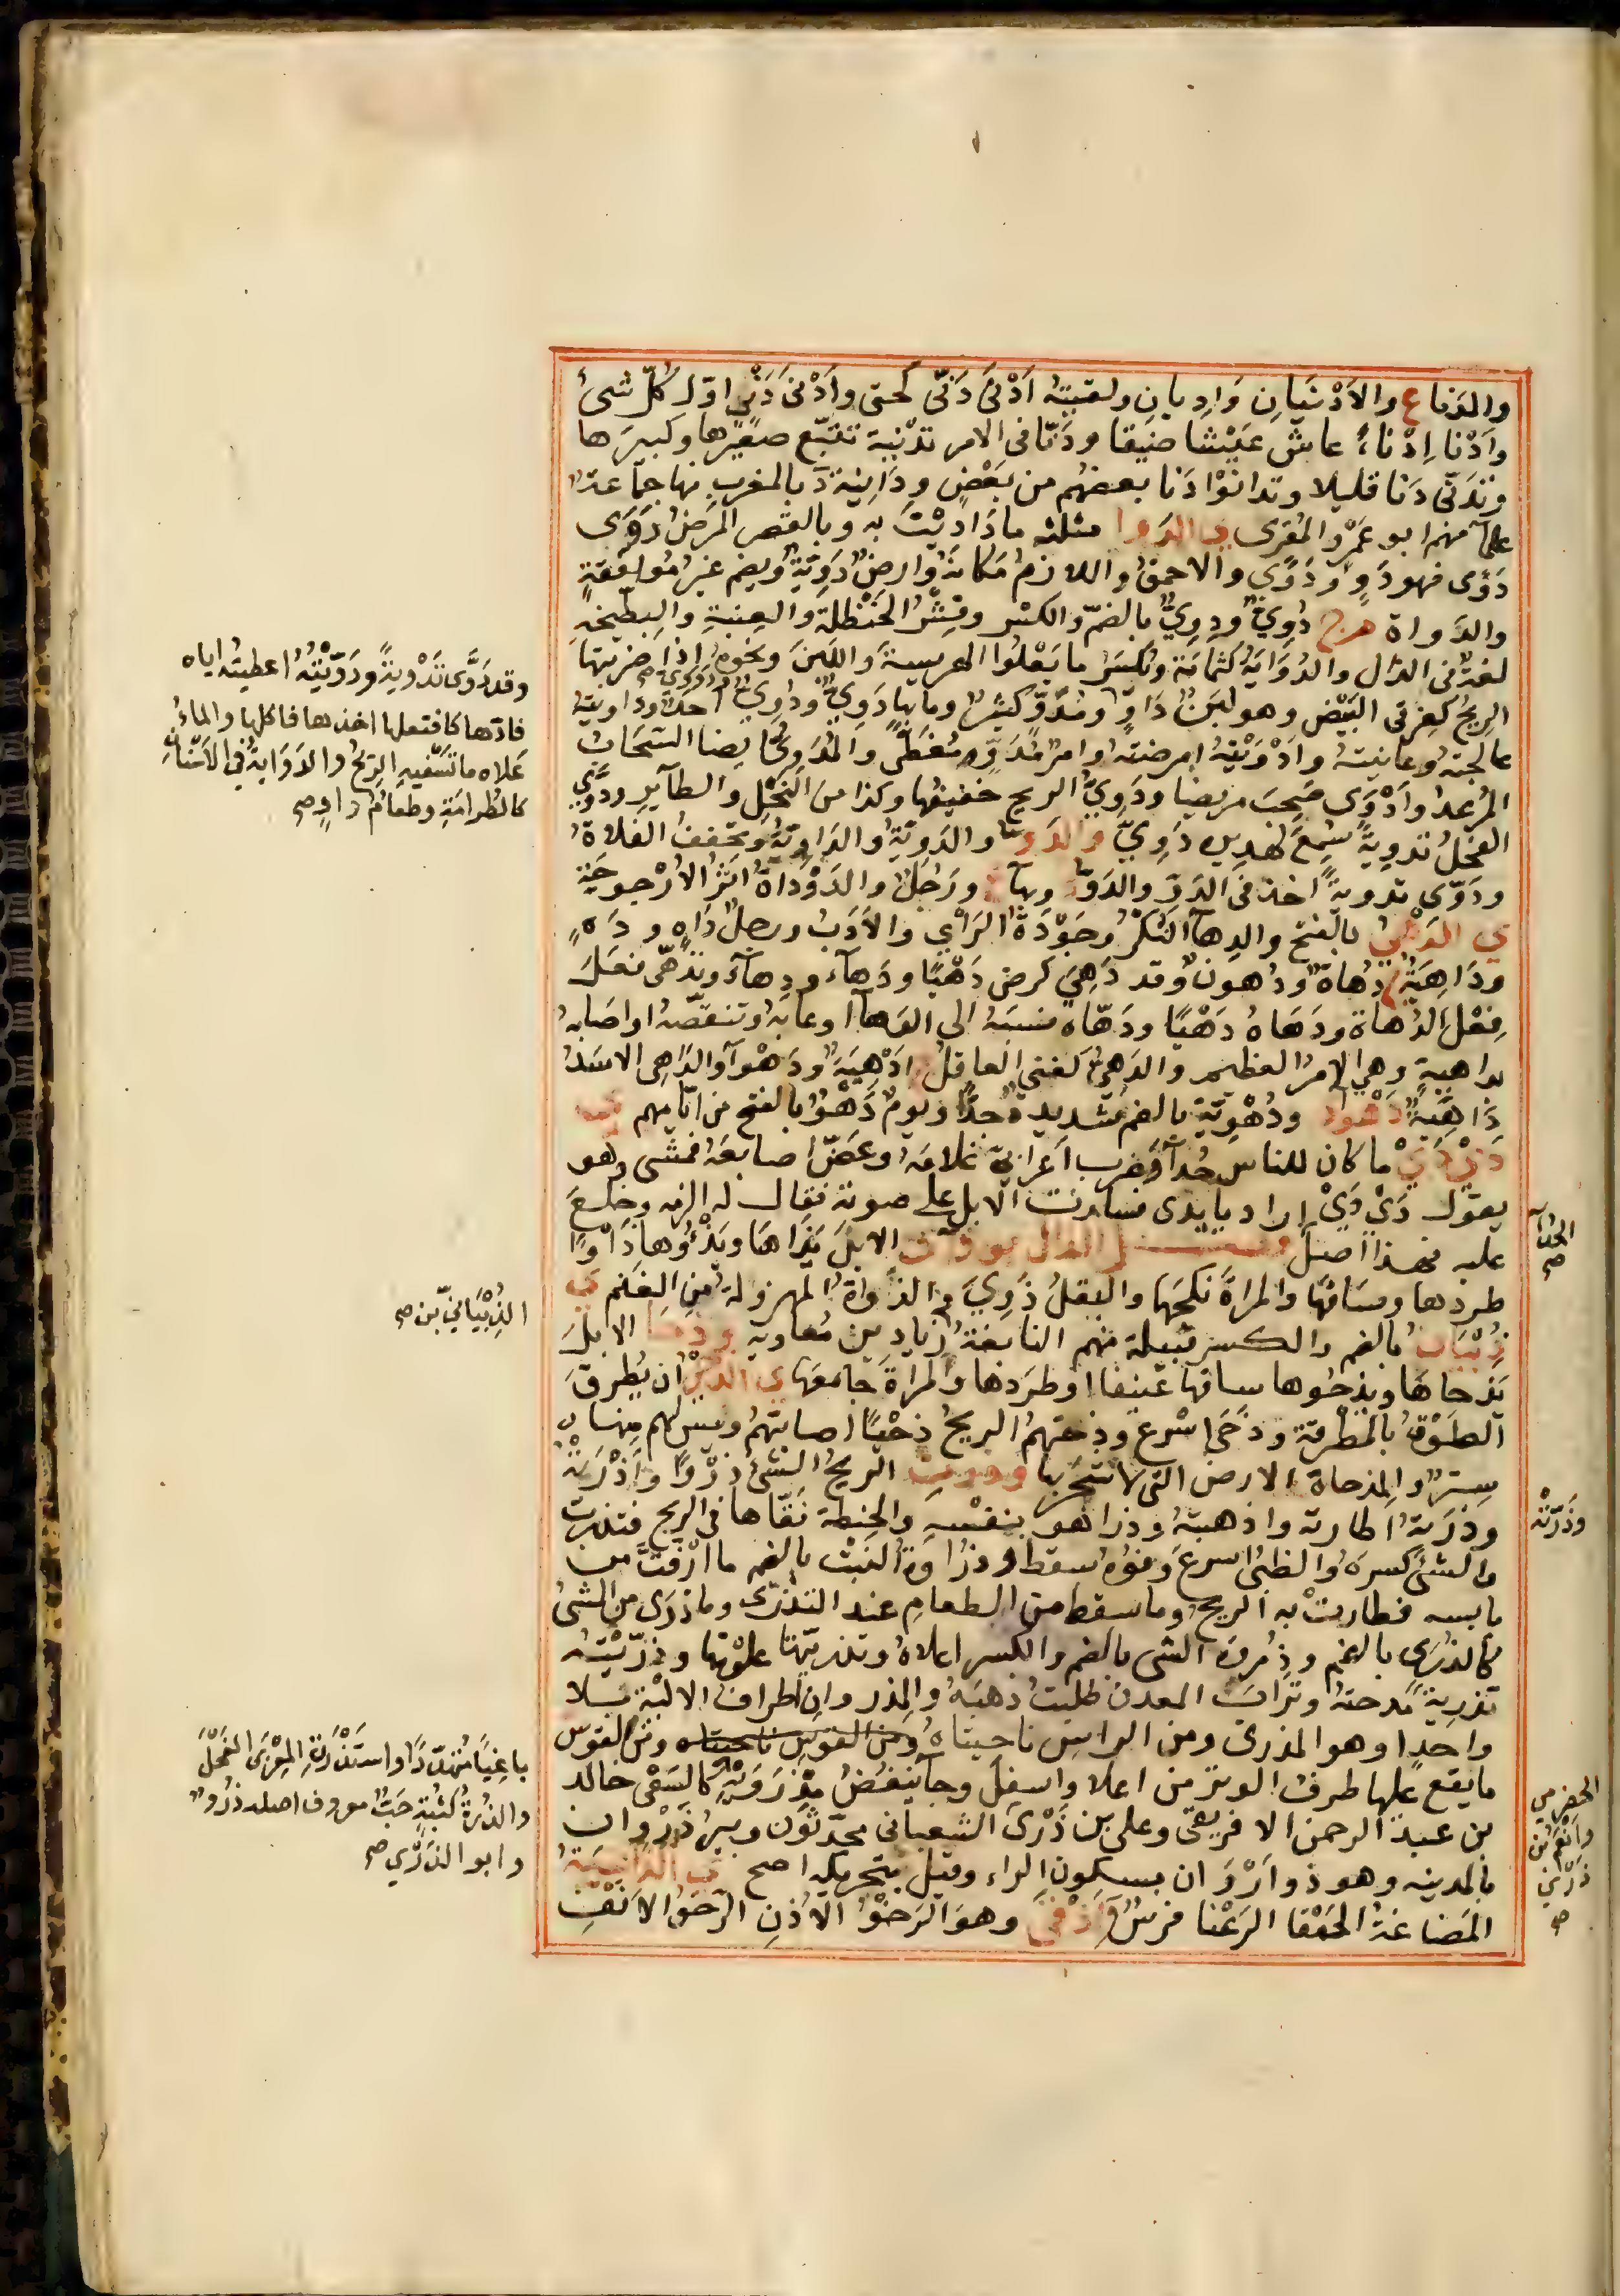 والدناع والأَدْنَيَانِ وَادِيانِ ولقيتهُ اَدْنَى دَنِيّ كَحتى واَدْنى دَنًى اوّل كلّ شىءٍ
واَدْنا اِدْناءً عاش عَيْشا ضيقا ودَنّا فى الامر تدْنية تتبّع صغيرها وكبيرها
وتَدَنّى دَنا قليلا وتدانَوْا دَنا بعضهُم من بَعْضٍ ودَانِيَة دٌ بالمغرب منها جماعةٌ
علمآ منهم ابو عَمْرو المُقرى ى الدَوا مثلثه ما دَاوَيْتَ به وبالقصر المرضُ دَوِىَ
دَوًى فهو دَوٍ ودَوًى والاحمقُ واللازمُ مَكانَهُ وارضٌ دَوِيَةٌ ويضم غيرُ مُوافقةٍ
والدَواة م ج دُوِيٌّ ودِوِيٌّ بالضمّ والكسْر وقِشْرُ الحَنْظلة والعِنَبةِ والبِطّيخه
لغةٌ فى الذال والدُوَايَةُ كثمامَة ويُكسَر ما يَعْلوا الهريسة واللبنَ ونحوه اذا ضربتها
الريحُ كغِرقى البَيْض وهو لبَنٌ دَاوٍ
عالجتهُ وعانيتهُ واَدْوَيْتهُ امرضتهُ وامرٌ مُدَوٍّ مُغَطًّى والمُدَوِّى ايضا السَحَابُ
المُرْعِدُ واَدْوَى صَحِبَ مريضا ودَوِيُّ الريح حفيفها وكذا من النَحْلِ والطآير ودَوَّى
الفحْلُ تدوِيةً سُمِعَ لهديره دَوِيٌّ والدَوّ والدَوِيّةُ والدَاوِيّةُ ويخففُ الفلاةُ
ودَوّى تدويةً اخذ فى الدَوِّ والدَوّ ورَجُلٌ والدَوْدَاةُ اثَرُ الاُرْجوحَةِ
ى الدَهْىُ بالفتح والدِهآ النُكْرُ وجَوْدَةُ الرَأْيِ والاَدَبُ ورجلٌ دَاهٍ ودَهٍ
ودَاهِيَةٌ ج دُهاةٌ ودُهونَ وقد دَهِيَ كرضى دَهْيًا ودَهاءً ودِهآءَ وتدهّى فعَلَ
فِعْلَ الدُهاة ودَهَاهُ دَهْيًا ودَهّاهُ نسبَهُ الى الدَهآ اوعابَهُ وتنقصّهُ او اصابهُ
بداهيةٍ وهي الامرُ العظيم والدَهِىُّ كغنى العاقلُ ج اَدْهِيَةٌ ودَهْوآ والدَاهِى الاسَدُ
دَاهِيَةٌ دَهْوآ ودُهْوِيّةٌ بالضم شديدة جدًّا ويومُ دَهْوٍ بالفتح من ايّامهم ى
دَيْ دَيْ ما كان للناس حُدآ فضرب اَعْرابِيّ غلامَهُ وعَضّ اصابعَهُ فمشى وهو
يقول دَيْ دَيْ اراد يا يدى فسارت الابل على صوته فقال له الزمه وخلَعَ
عليه فهذا اصلُ فصـــل الذال و ذَاى الابلَ يَذْاَهَا ويَذْءُوها ذَاْوًا
طردها وسَاقها والمراةَ نكَحَها والبقلُ ذَوِيَ والذأواةُ المهزولةُ مِنَ الغنم ى
ذُبْيَان بالضم والكسر قبيلة منهم النابغةُ زِيَاد بن مُعاوية و ذحَا الابلَ
يَذْحَاهَا ويذحُوها ساقها عَنيفا او طَرَدها والمراةَ جامعَها ى الذَحْىُ ان يُطرقَ
الصُوْفُ بالمطْرقة وذحَى اسْرع وذحَتهمُ الريحُ ذحْيًا اصابتهمُ وليس لهم منها
سِترٌ والمِذحاة الارض التى لا شجَر بها و ذرَتِ الريحُ الشىءَ ذرْوًا واَذْرَتهُ
وذرَتهُ اَطارته واذهبتهُ وذرا هو بنفسه والحِنطة نَقّاها فى الريح فتذرّت
والشىءَ كسرهُ والظبىُ اسرعَ وفوهُ سقط وذرَاوَةُ النَبْت بالضم ما ارْفَتَّ من
يابسه فطارتْ به الريحُ وما سقط من الطعامِ عند التذرّى وما ذرَى من الشىءِ
كالذُرَى بالضم وذُروَة الشى بالضم والكسر اعلاهُ وتذرّيتها علَوْتها وذرّيْتُه
تذريَةً مَدحتهُ وتُرابَ المعدن طلبتُ ذهبَهُ والمِذرَوانِ اطرافُ الالْيَة بلا
واحدٍ او هو المِذرَى ومن الراسِ ناحيتاهُ ومن القوس
ما يقع عليها طرفُ الوتر من اعلا واسفلَ وجآ ينفضُ مِذرَوَيْهِ كالسَقْى خالد
بن عبد الرحمن الافريقى وعلى بن ذَرْى الشيبانى محدّثون وبيرُ ذَرْوان
بالمدينه وهو ذو اَرْوَان بسكون الراء وقيل بتحريكه اصح ى الذَاغِيَةُ
المَضاغةُ الحَمْقا الرَعْنا فرسٌ اَذْقَى وهو الرَخْوُ الاُذنِ الرَخوُ الاَنفِ
وقد دَوَّى تَدْوِيةً ودَوّيْتُهُ اعطيتهُ اياه
فادّواها كافتعلها اخذها فاكلها والماءُ
عَلاه ما تَسْفيه الريحُ والدَوَايةُ فى الاَسْنانِ
كالطُرامَةِ وطعامٌ داوٍ صح
الحُدآ
صح
الذُبْيَانِيّ بن صح
وذَرّته
باغِيًا مُتهدّدًا واستَذْرَتِ المِعْزَى الفَحْلَ
والذُرةُ كثُبَةٍ حَبٌّ معروف اصله ذُرَوٌ
وابو الذَرِّي صح
الحضرمى
وانعُم بن
ذَرْى
صح